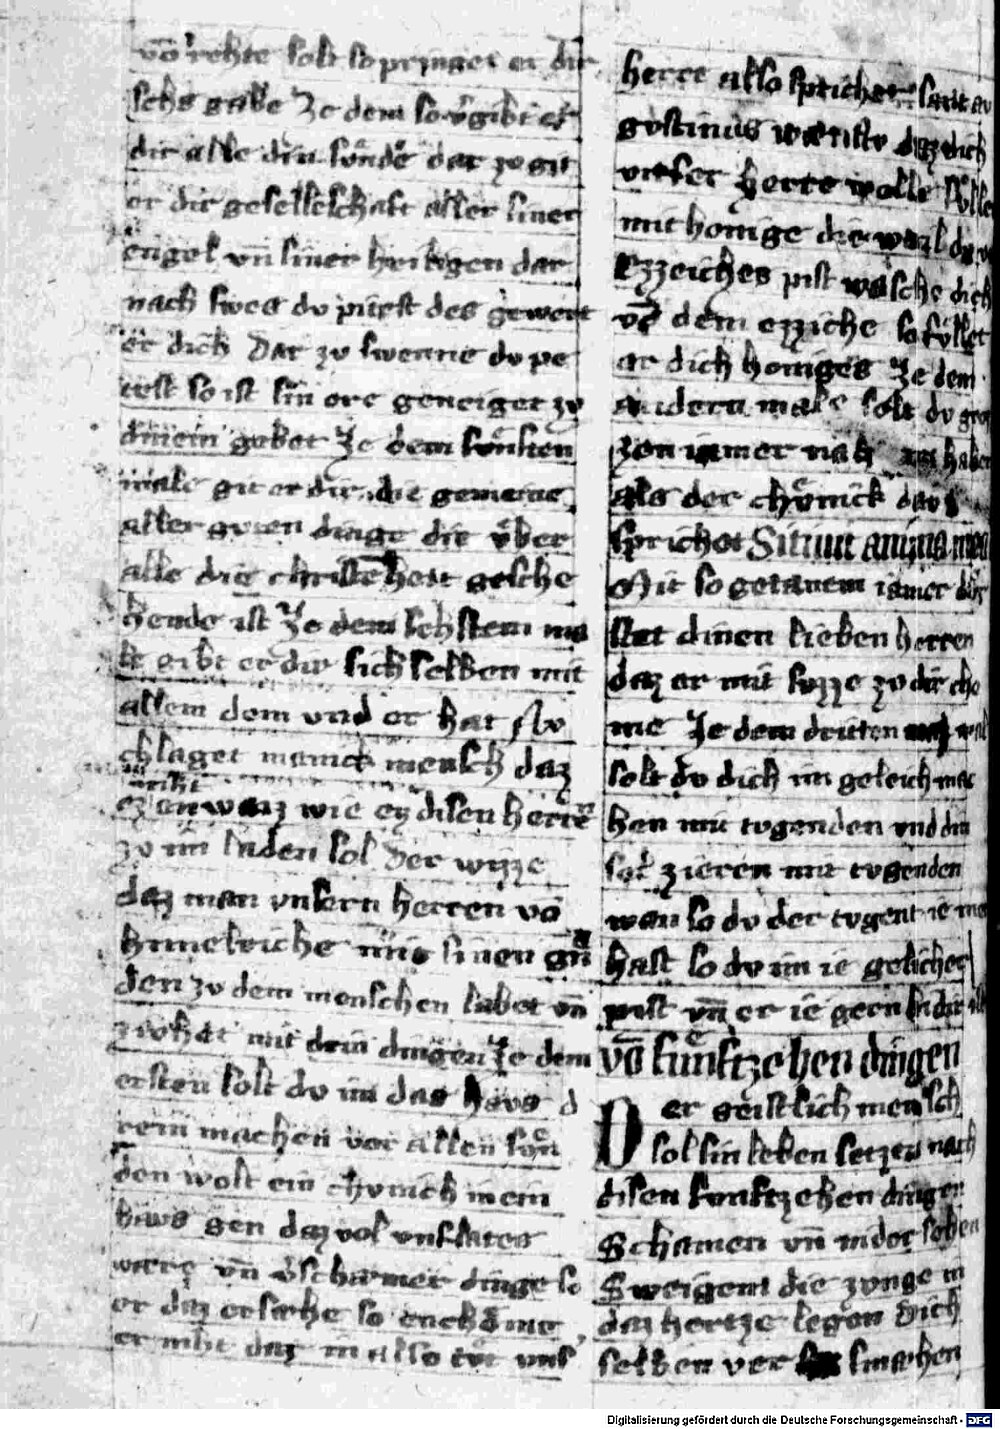 vō rehte solt so pringet er dir
sehs gabe Ze dem so v̉gibt er
dir alle din sünde dar zv git
er dir geselleschaft aller siner
engel vn̄ siner heiligen dar
nach swes dv pitest des gewert
er dich Dar zv swenne dv pe
test so ist sin ore geneiget zv
dinem gebet Ze dem fünften
male git er dir die gemeine
aller gvten dinge die v̊ber
alle die christēheit gesche
hende ist Ze dem sehstem ma
le gibt er dir sich selben mit
allem dem vnd er hat Nv
chlaget manick mensch daz
niht
ez en waiz wie ez disen herrē
zv im laden sol Der wizze
daz man vnsern herren vō
himelriche mit sinen gna
den zv dem menschen ladet vn̄
zivhet mit drin dingen Ze dem
ersten solt dv im das havs
rein machen vor allen sün
den wolt ein chvnich in ein
haws gen daz vol vnflates
were vn̄ v̉schamter dinge so
er daz ersæhe so enchōme
er niht daz in also tůt vnser
herre also sprichet sant av
gvstinus wænstv daz dich
vnser herre welle füllen
mit honige die weil dv vol
ezzeiches pist wasche dich
vō dem ezziche so füllet
er dich honiges Ze dem
andern male solt dv gro
zen iamer nah im haben
als der chv̊nick davit
sprichet Sitiuit anima mea
Mit so getanem iamer dür
stet dinen lieben herren
daz er mit svzze zv dir cho
me Ze dem dritten mal
solt dv dich im geleich mac
hen mit tvgenden vnd din
sel zieren mit tvgenden
wan so dv der tvgent ie me
hast so dv im ie gelicher
pist vn̄ er ie gern in dir ist
vō fünftzehen dingen
Der geistlich mensch
sol sin leben setzen nach
disen funftzehen dingen
Schamen vn̄ nider sehen
Sweigent die zvnge in
daz hertze legen Sich
selben ver smahen
Digitalisierung gefördert durch die Deutsche Forschungsgemeinschaft - DFG